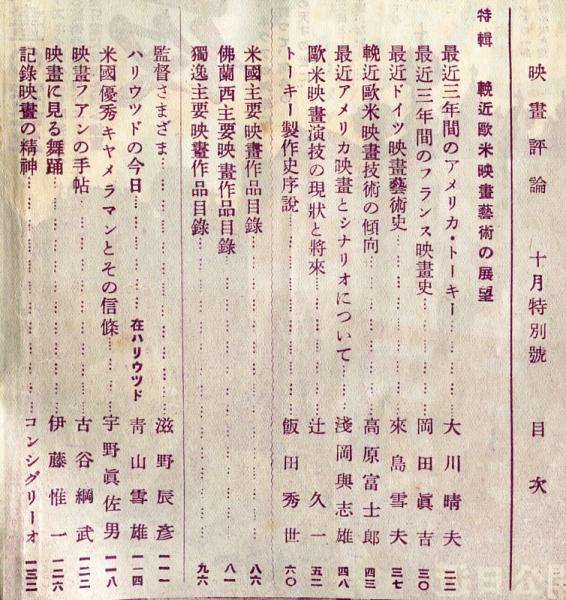 映畫評論 十月特別號 目次
特輯 輓近歐米映畫藝術の展望
最近三年間のアメリカ・トーキー 大川晴夫 二二
最近三年間のフランス映畫史 岡田眞吉 三〇
最近ドイツ映畫藝術史 來島雪夫 三七
輓近歐米映畫技術の傾向 高原富士郎 四三
最近アメリカ映畫とシナリオについて 淺岡與志雄 四八
歐米映畫演技の現狀と將來 辻久一 五二
トーキー製作史序說 飯田秀世 六〇
米國主要映畫作品目錄 八六
佛蘭西主要映畫作品目錄 八一
獨逸主要映畫作品目錄 九六
監督さまざま 滋野辰彥 一一一
ハリウツドの今日 在ハリウツド 靑山雪雄 一一四
米國優秀キヤメラマンとその信條 宇野眞佐男 一一八
映畫フアンの手帖 古谷綱武 一二二
映畫に見る舞踊 伊藤惟一 一二六
記錄映畫の精神 コンシグリーオ 一三二